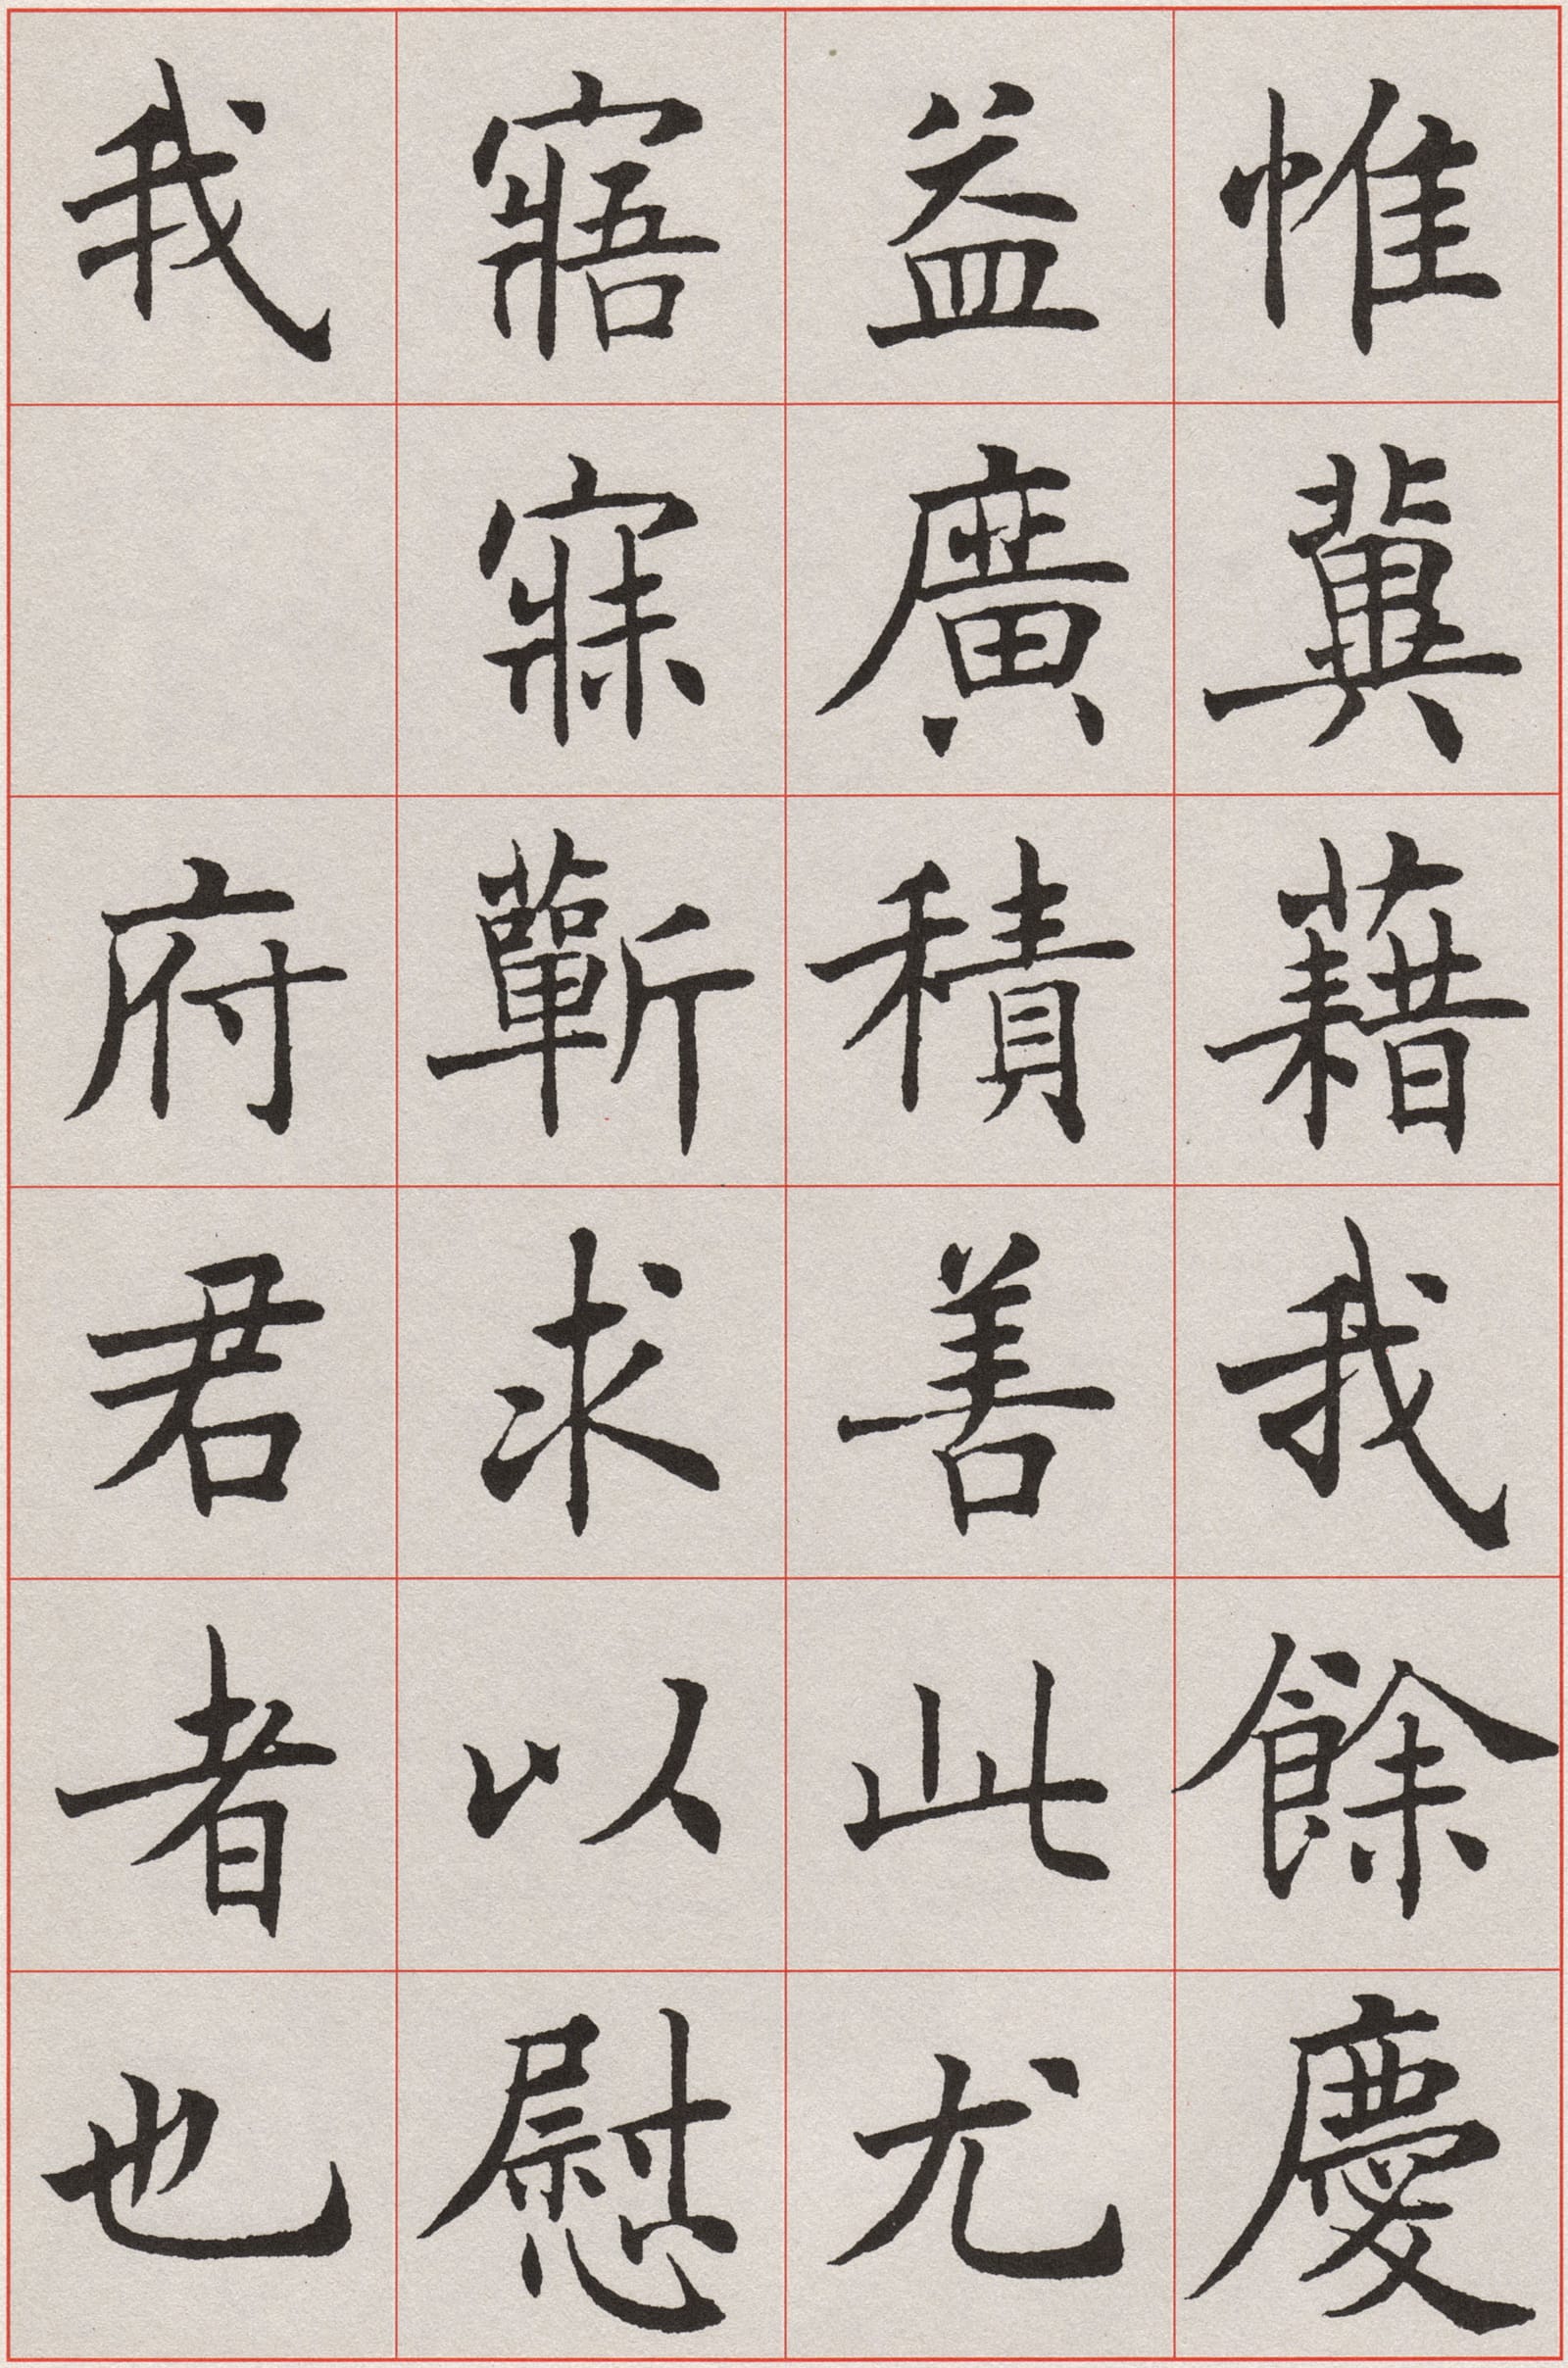 惟冀藉我餘慶
益廣積善此尤
寤寐蘄求以慰
我　府君者也